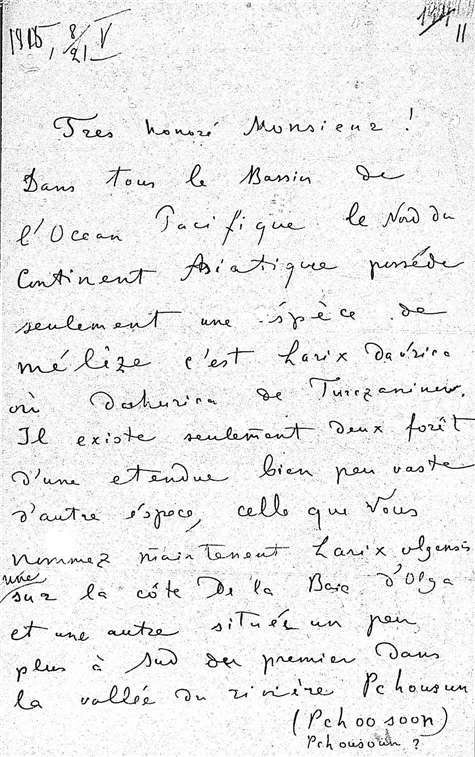 1915, 8/21 V
11
Tres honoré Monsieur !
Dans tous le Bassin de
l'Ocean Pacifique le Nord du
Continent Asiatique posséde
seulement une éspèce de
mélèze c'est Larix davúrica
où dahurica de Turczaninew.
Il existe seulement deux forêt
d'une etendue bien peu vaste
d'autre éspece, celle que Vous
nommez maintenent Larix olgensis
une
sur la côte De la Baie d'Olga
et une autre située un peu
plus à Sud du premier dans
la vallée du rivière Pchousun
(Pchoosoon)
Pchousoun ?